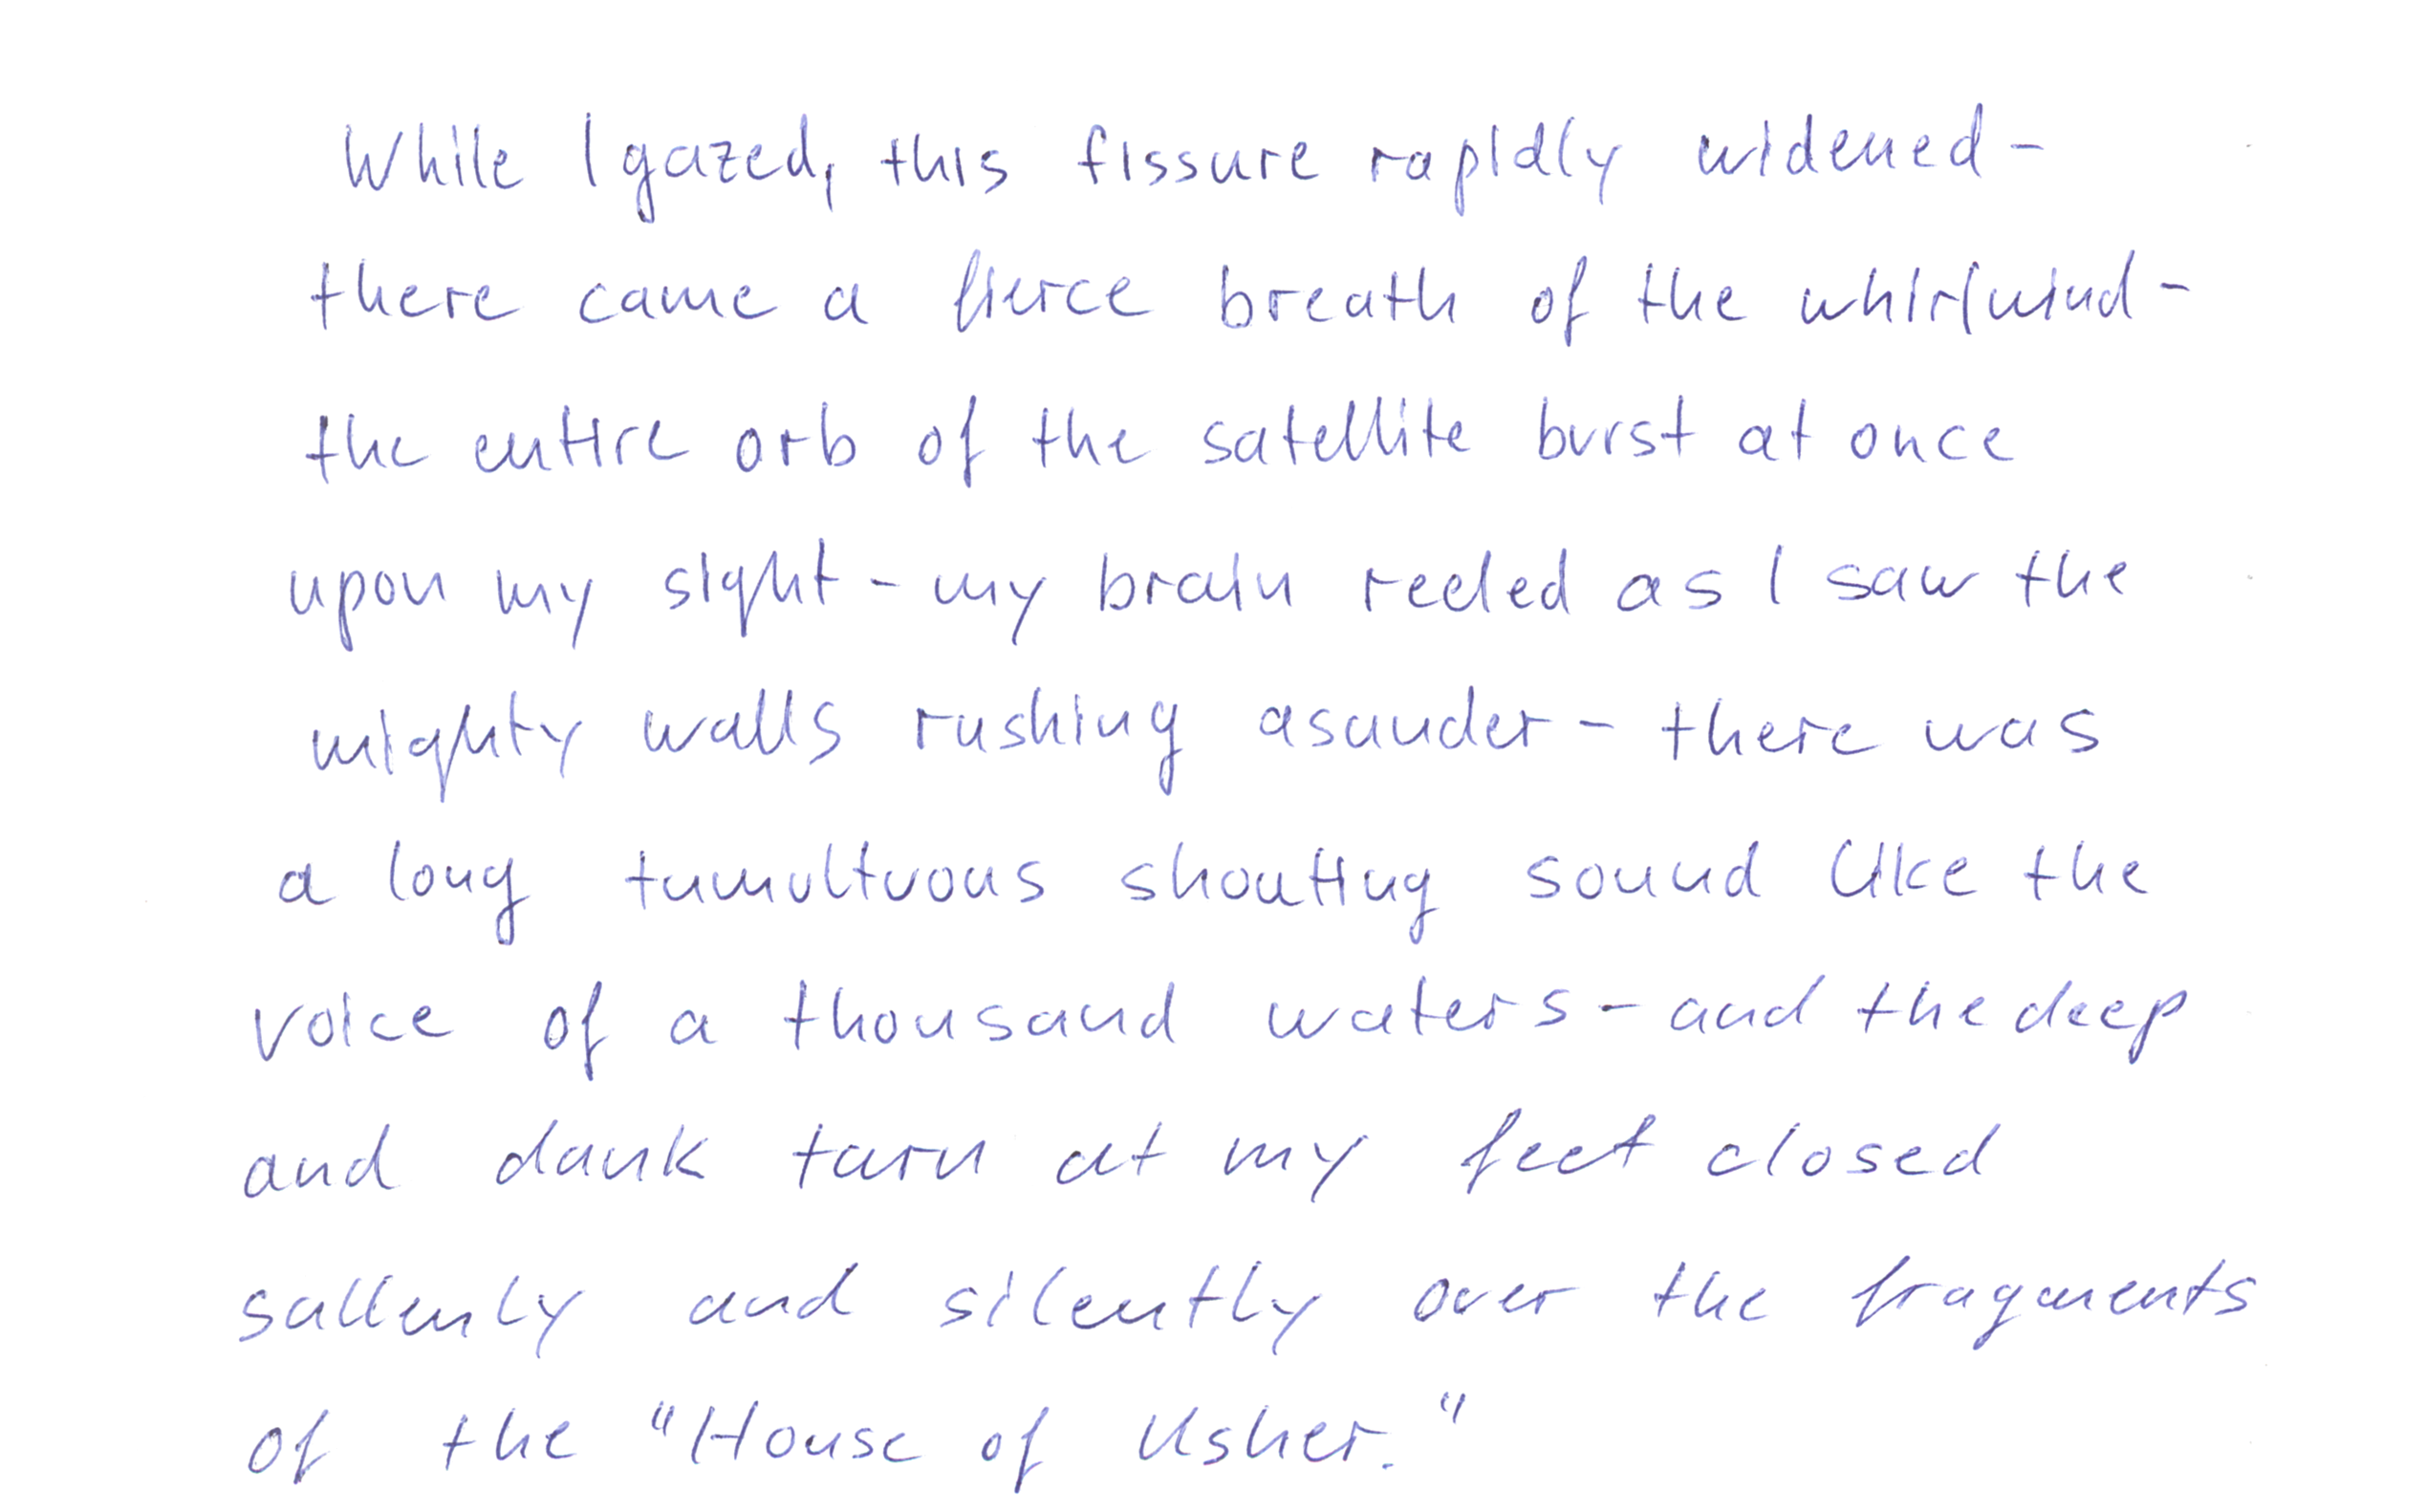 While I gazed, this fissure rapidly widened-
there came a fierce breath of the whirlwind-
the entire orb of the satellite burst at once
upon my sight - my brain reeled as I saw the
mighty walls rushing asunder - there was
a long tumultuous shouting sound like the
voice of a thousand waters - and the deep
and dank tarn at my feet closed
sullenly and silently over the fragments
of the "House of Usher."